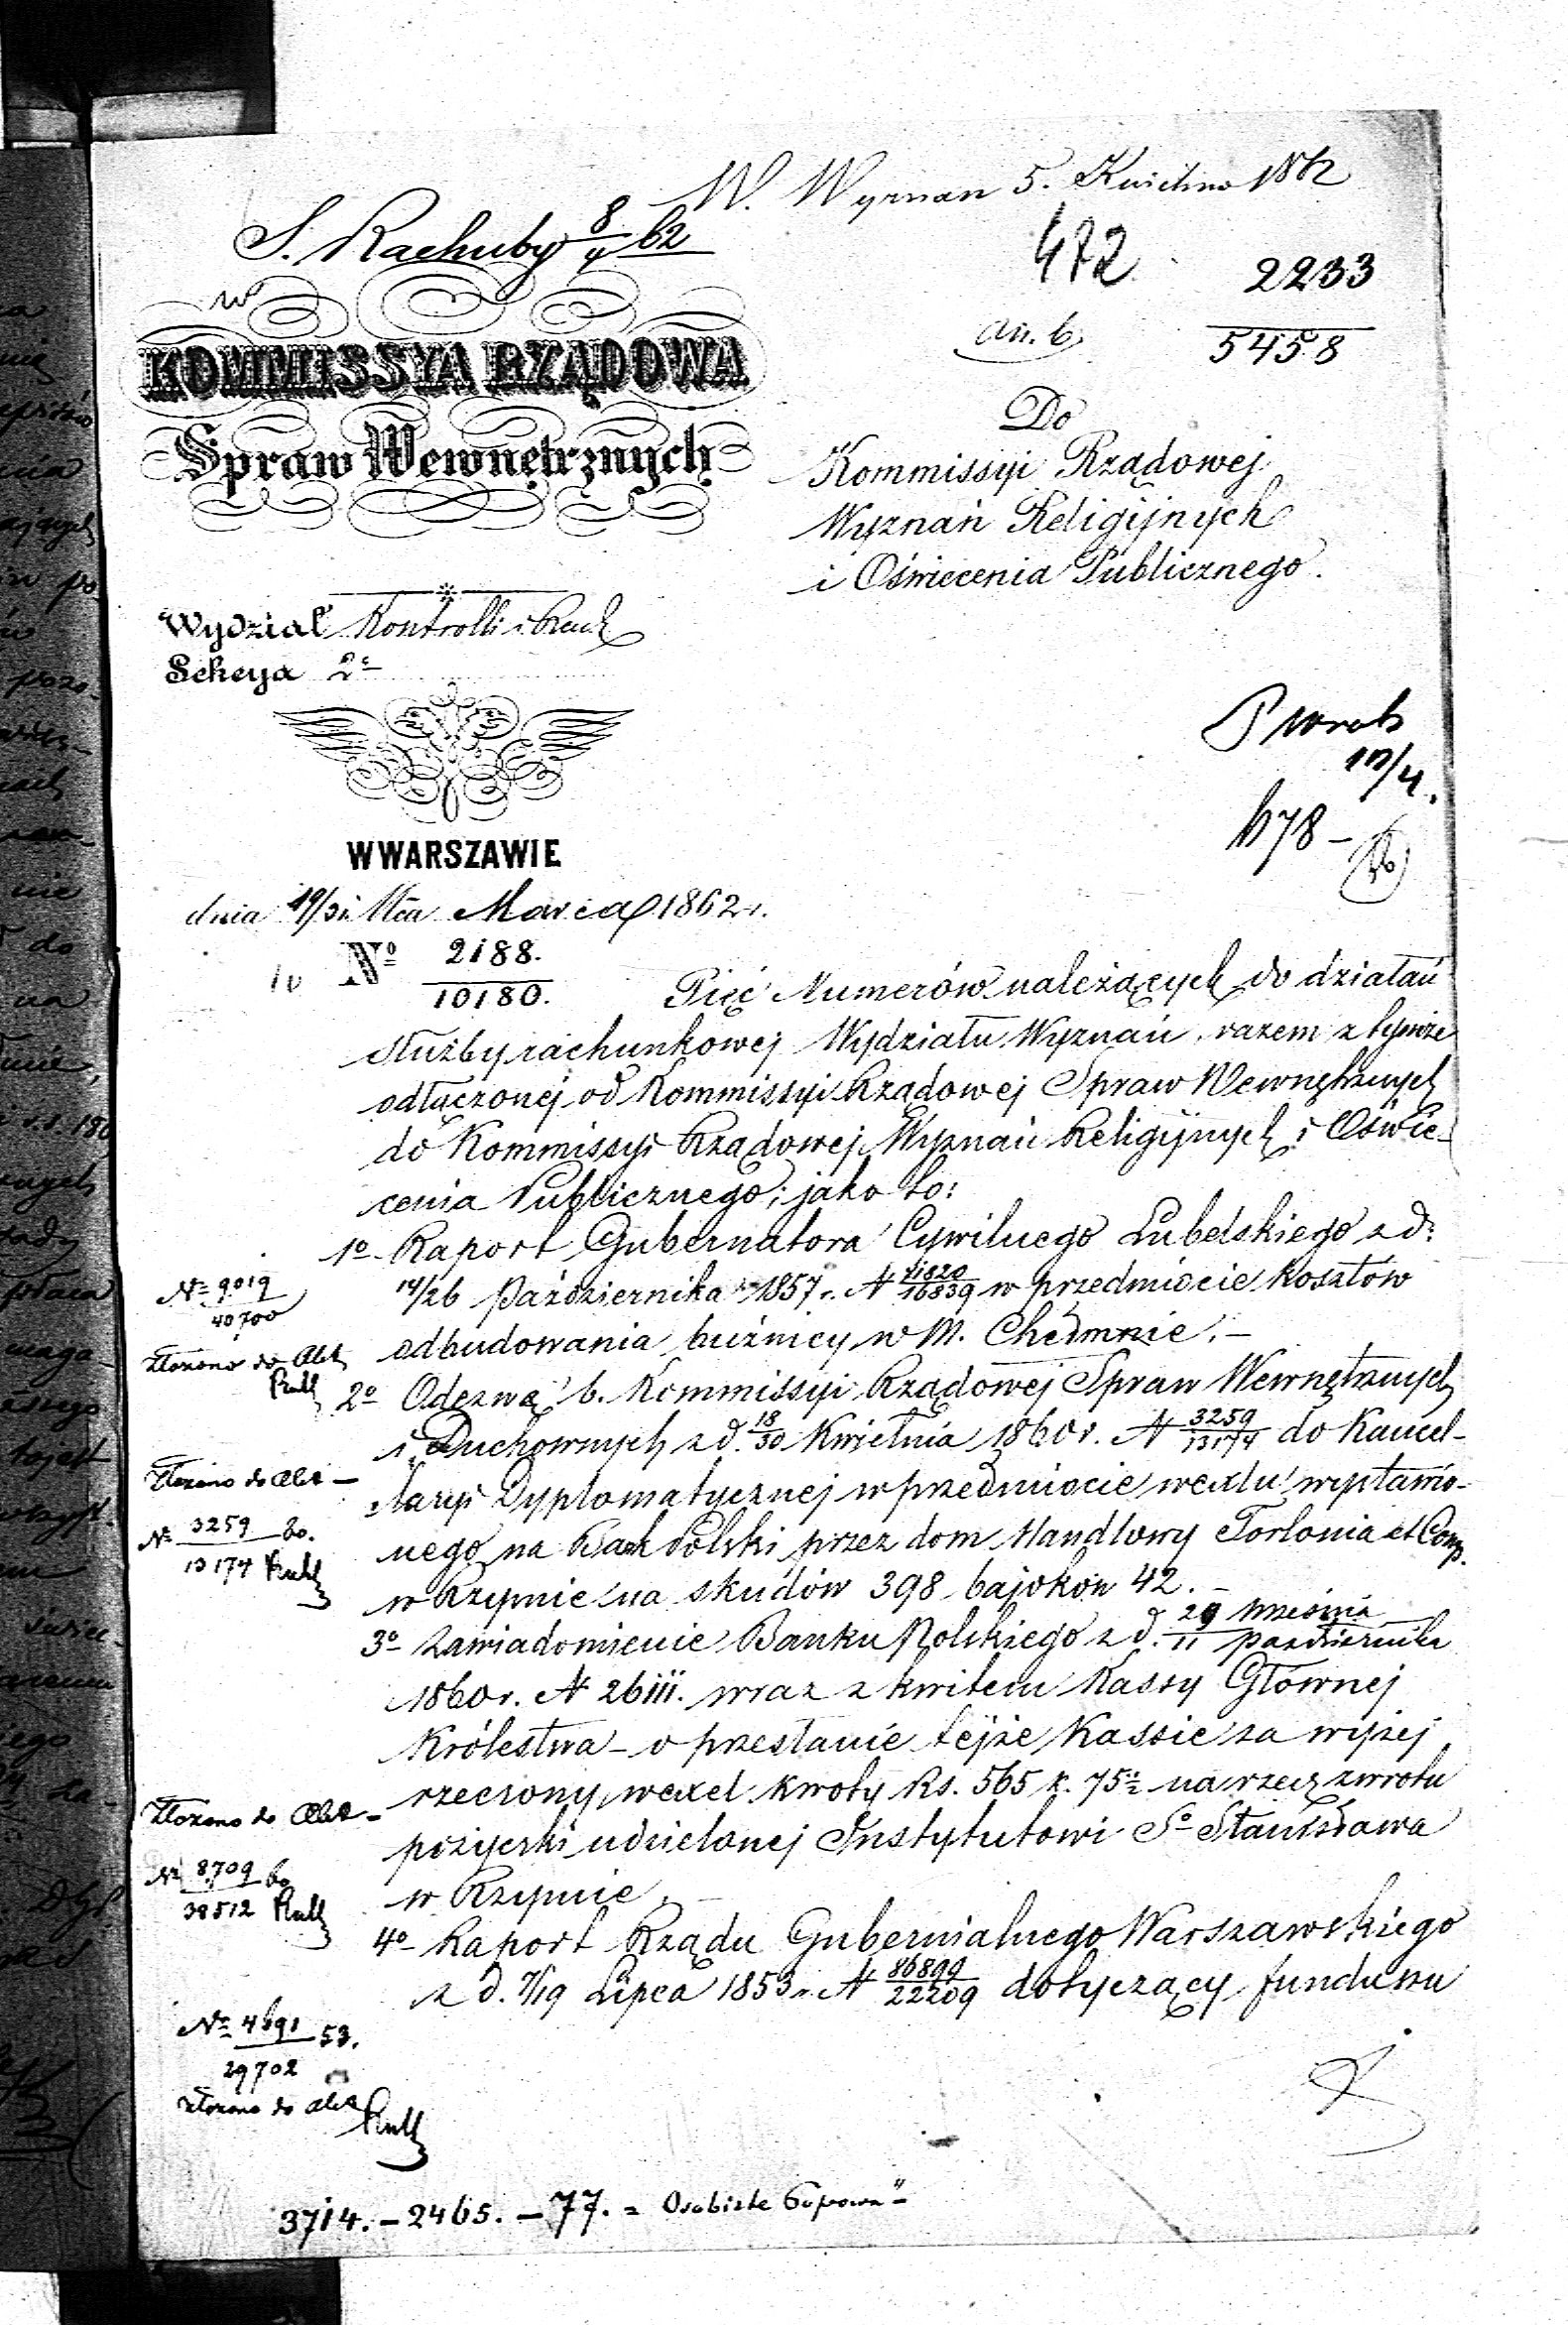 W. Wyznan 5. Kwietnia 1862
S. Rachuby 8/4 62
472
2233
5458
an. 6
w
KOMMISSYA RZĄDOWA
Spraw Wewnętrznych
Do
Kommissyi Rządowej
Wyznań Religijnych
i Oświecenia Publicznego.
Wydział Kontrolli i Rach
Sekcya 2a
W WARSZAWIE
dnia 19/31 Mca Marca 1862 r.
No 2188.
10180.
17/4.
678 –
Pięć Numerów należących do działań
służby rachunkowej Wydziału Wyznań, razem z tymże
odłączonej od Kommissyi Rządowej Spraw Wewnętrznych
do Kommissyi Rządowej Wyznań Religijnych i Oświe-
cenia Publicznego; jako to:
1o Raport Gubernatora Cywilnego Lubelskiego z d:
14/26 Października 1857 r. N 41820/16839 w przedmiocie kosztów
odbudowania buźnicy w M. Chełmnie. –
2o Odezwę b. Kommissyi Rządowej Spraw Wewnętrznych
i Duchownych z d. 18/30 Kwietnia 1860 r. N 3259/13174 do Kancel-
laryi Dyplomatycznej w przedmiocie wexlu wystawio-
nego na Bank Polski przez dom Handlowy Torlonia et Comp.
w Rzymie na skudów 398 bajoków 42. –
3o Zawiadomienie Banku Polskiego z d. 29 Września/11 Października
1860 r. N 26111. wraz z kwitem Kassy Głównej
Królestwa – o przesłanie tejże Kassie za wyżej
rzeczony wexel kwoty Rs. 565 k. 75½ na rzecz zwrotu
pożyczki udzielonej Instytutowi So Stanisława
w Rzymie. –
4o Raport Rządu Gubernialnego Warszawskiego
z d. 7/19 Lipca 1853 r. N 86899/22209 dotyczący funduszu
No 9019
40700
Złożono do Akt
Złożono do Akt –
No 3259 60.
13174
Złożono do Akt –
No 8709 60
38512
No 4691 53.
29702
Złożono do Akt
3714. – 2465. – 77. = Osobiste